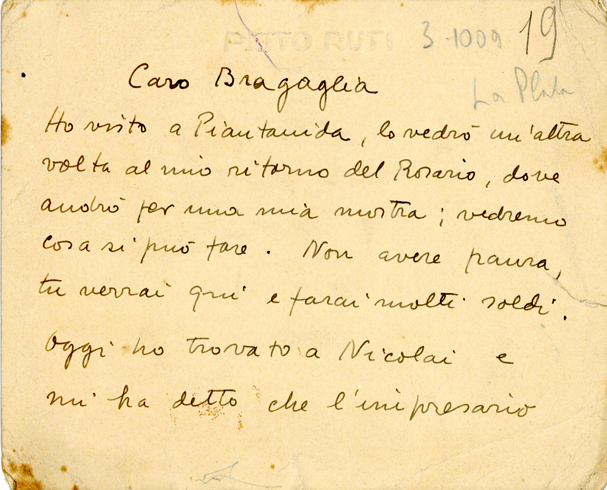 3-1009
19
La Plata
Caro Bragaglia
Ho visto a Piantanida, lo vedrò un'altra
volta al mio ritorno del Rosario, dove
andrò per una mia mostra; vedremo
cosa si può fare. Non avere paura,
tu verrai qui e farai molti soldi.
Oggi ho trovato a Nicolai e
mi ha detto che l'impresario